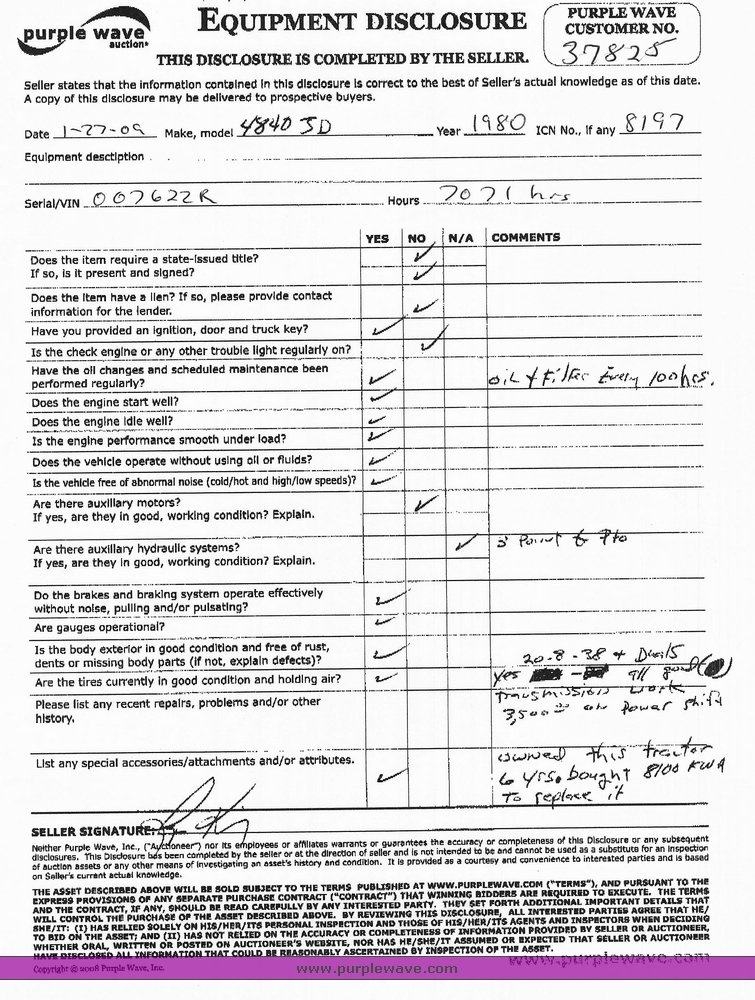 purple wave
auction
EQUIPMENT DISCLOSURE
THIS DISCLOSURE IS COMPLETED BY THE SELLER.
PURPLE WAVE
CUSTOMER NO.
37825
Seller states that the information contained in this disclosure is correct to the best of Seller's actual knowledge as of this date.
A copy of this disclosure may be delivered to prospective buyers.
Date 1-27-09 Make, model 4840 JD Year 1980 ICN No., if any 8197
Equipment desctiption
Serial/VIN 007622R Hours 7071 hrs
YES NO N/A COMMENTS
Does the item require a state-issued title?
If so, is it present and signed?
Does the item have a lien? If so, please provide contact
information for the lender.
Have you provided an ignition, door and truck key?
Is the check engine or any other trouble light regularly on?
Have the oil changes and scheduled maintenance been
performed regularly?
oil & Filter Every 100 hrs.
Does the engine start well?
Does the engine idle well?
Is the engine performance smooth under load?
Does the vehicle operate without using oil or fluids?
Is the vehicle free of abnormal noise (cold/hot and high/low speeds)?
Are there auxiliary motors?
If yes, are they in good, working condition? Explain.
Are there auxiliary hydraulic systems?
If yes, are they in good, working condition? Explain.
3 Point & Pto
Do the brakes and braking system operate effectively
without noise, pulling and/or pulsating?
Are gauges operational?
Is the body exterior in good condition and free of rust,
dents or missing body parts (if not, explain defects)?
20.8-38 + Duals
Are the tires currently in good condition and holding air?
yes all good
Please list any recent repairs, problems and/or other
history.
transmission work
3,500 on Power shift
List any special accessories/attachments and/or attributes.
owned this tractor
6 yrs. bought 8100 KWA
To replace it
SELLER SIGNATURE:
Neither Purple Wave, Inc., ("Auctioneer") nor its employees or affiliates warrants or guarantees the accuracy or completeness of this Disclosure or any subsequent
disclosures. This Disclosure has been completed by the seller or at the direction of seller and is not intended to be and cannot be used as a substitute for an inspection
of auction assets or any other means of investigating an asset's history and condition. It is provided as a courtesy and convenience to interested parties and is based
on Seller's current actual knowledge.
THE ASSET DESCRIBED ABOVE WILL BE SOLD SUBJECT TO THE TERMS PUBLISHED AT WWW.PURPLEWAVE.COM ("TERMS"), AND PURSUANT TO THE
EXPRESS PROVISIONS OF ANY SEPARATE PURCHASE CONTRACT ("CONTRACT") THAT WINNING BIDDERS ARE REQUIRED TO EXECUTE. THE TERMS
AND THE CONTRACT, IF ANY, SHOULD BE READ CAREFULLY BY ANY INTERESTED PARTY. THEY SET FORTH ADDITIONAL IMPORTANT DETAILS THAT
WILL CONTROL THE PURCHASE OF THE ASSET DESCRIBED ABOVE. BY REVIEWING THIS DISCLOSURE, ALL INTERESTED PARTIES AGREE THAT HE/
SHE/IT: (I) HAS RELIED SOLELY ON HIS/HER/ITS PERSONAL INSPECTION AND THOSE OF HIS/HER/ITS AGENTS AND INSPECTORS WHEN DECIDING
TO BID ON THE ASSET; AND (II) HAS NOT RELIED ON THE ACCURACY OR COMPLETENESS OF INFORMATION PROVIDED BY SELLER OR AUCTIONEER,
WHETHER ORAL, WRITTEN OR POSTED ON AUCTIONEER'S WEBSITE, NOR HAS HE/SHE/IT ASSUMED OR EXPECTED THAT SELLER OR AUCTIONEER
HAVE DISCLOSED ALL INFORMATION THAT COULD BE REASONABLY ASCERTAINED BY INSPECTION OF THE ASSET.
www.purplewave.com
Copyright @ 2008 Purple Wave, Inc.
www.purplewave.com